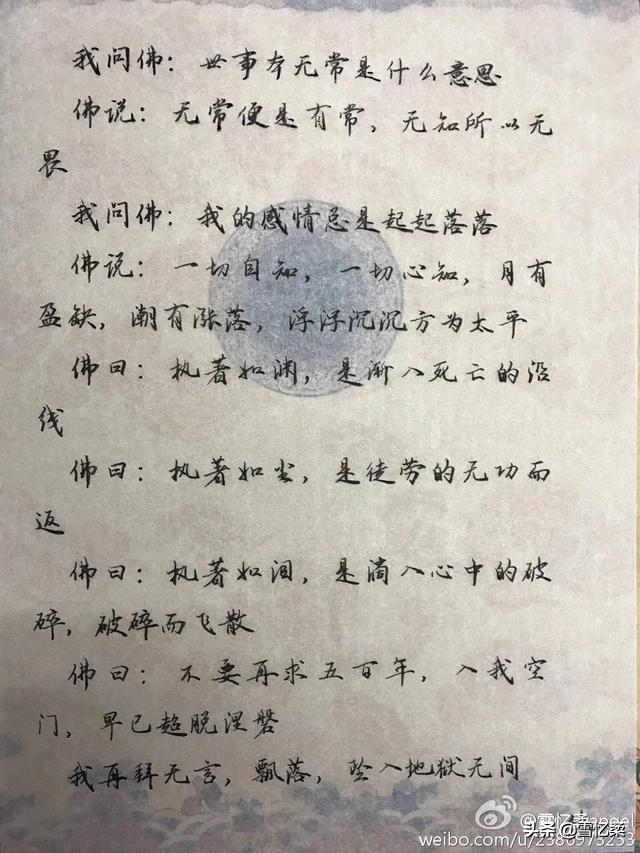 我问佛：世事本无常是什么意思
佛说：无常便是有常，无知所以无
畏
我问佛：我的感情总是起起落落
佛说：一切自知，一切心知，月有
盈缺，潮有涨落，浮浮沉沉方为太平
佛曰：执著如渊，是渐入死亡的沿
线
佛曰：执著如尘，是徒劳的无功而
返
佛曰：执著如泪，是滴入心中的破
碎，破碎而飞散
佛曰：不要再求五百年，入我空
门，早已超脱涅磐
我再拜无言，飘落，坠入地狱无间
头条@雪忆柔
weibo.com/u/2386973253